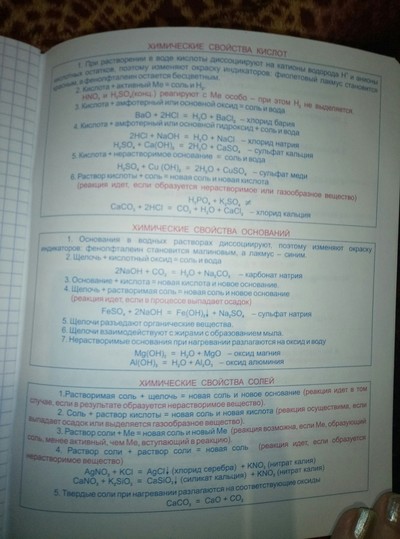 ХИМИЧЕСКИЕ СВОЙСТВА КИСЛОТ
1. При растворении в воде кислоты диссоциируют на катионы водорода H⁺ и анионы
кислотных остатков, поэтому изменяют окраску индикаторов: фиолетовый лакмус становится
красным, а фенолфталеин остается бесцветным.
2. Кислота + активный Ме = соль и H₂.
HNO₃ и H₂SO₄(конц.) реагируют с Ме особо – при этом H₂ не выделяется.
3. Кислота + амфотерный или основной оксид = соль и вода
BaO + 2HCl = H₂O + BaCl₂ – хлорид бария
4. Кислота + амфотерный или основной гидроксид = соль и вода
2HCl + NaOH = H₂O + NaCl – хлорид натрия
H₂SO₄ + Ca(OH)₂ = 2H₂O + CaSO₄ – сульфат кальция
5. Кислота + нерастворимое основание = соль и вода
H₂SO₄ + Cu (OH)₂ = 2H₂O + CuSO₄ – сульфат меди
6. Раствор кислоты + соль = новая соль и новая кислота
(реакция идет, если образуется нерастворимое или газообразное вещество)
H₃PO₄ + K₂SO₄ ≠
CaCO₃ + 2HCl = CO₂ + H₂O + CaCl₂ – хлорид кальция
ХИМИЧЕСКИЕ СВОЙСТВА ОСНОВАНИЙ
1. Основания в водных растворах диссоциируют, поэтому изменяют окраску
индикаторов: фенолфталеин становится малиновым, а лакмус – синим.
2. Щелочь + кислотный оксид = соль и вода
2NaOH + CO₂ = H₂O + Na₂CO₃ – карбонат натрия
3. Основание + кислота = новая кислота и новое основание.
4. Щелочь + растворимая соль = новая соль и новое основание
(реакция идет, если в процессе выпадает осадок)
FeSO₄ + 2NaOH = Fe(OH)₂↓ + Na₂SO₄ – сульфат натрия
5. Щелочи разъедают органические вещества.
6. Щелочи взаимодействуют с жирами с образованием мыла.
7. Нерастворимые основания при нагревании разлагаются на оксид и воду
Mg(OH)₂ = H₂O + MgO – оксид магния
Al(OH)₃ = H₂O + Al₂O₃ – оксид алюминия
ХИМИЧЕСКИЕ СВОЙСТВА СОЛЕЙ
1.Растворимая соль + щелочь = новая соль и новое основание (реакция идет в том
случае, если в результате образуется нерастворимое вещество).
2. Соль + раствор кислоты = новая соль и новая кислота (реакция осуществима, если
выпадает осадок или выделяется газообразное вещество).
3. Раствор соли + Ме = новая соль и новый Ме (реакция возможна, если Ме, образующий
соль, менее активный, чем Ме, вступающий в реакцию).
4. Раствор соли + раствор соли = новая соль (реакция идет, если образуется
нерастворимое вещество)
AgNO₃ + KCl = AgCl↓ (хлорид серебра) + KNO₃ (нитрат калия)
CaNO₃ + K₂SiO₃ = CaSiO₃↓ (силикат кальция) + KNO₃ (нитрат калия)
5. Твердые соли при нагревании разлагаются на соответствующие оксиды
CaCO₃ = CaO + CO₂